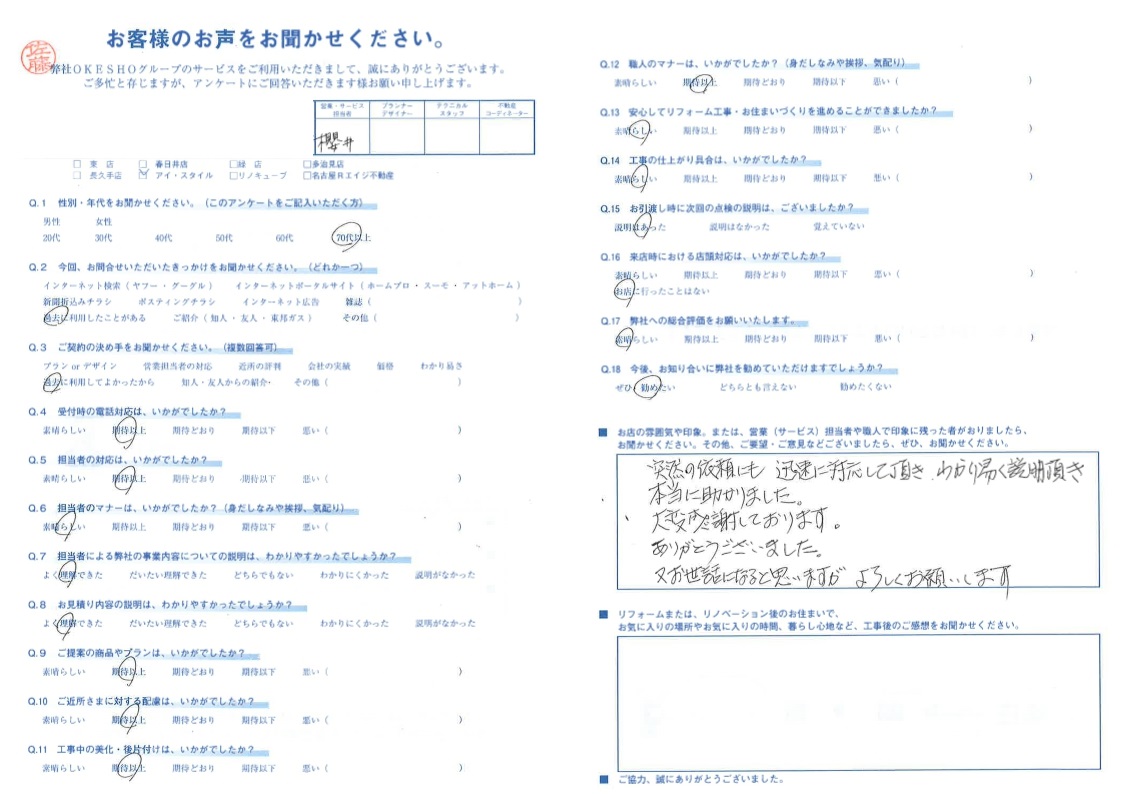 お客様のお声をお聞かせください。
佐藤
弊社OKESHOグループのサービスをご利用いただきまして、誠にありがとうございます。
ご多忙と存じますが、アンケートにご回答いただきます様お願い申し上げます。
営業・サービス担当者 プランナーデザイナー テクニカルスタッフ 不動産コーディネーター
櫻井
□ 東 店 □ 春日井店 □緑 店 □多治見店
□ 長久手店 ☑ アイ・スタイル □リノキューブ □名古屋Rエイジ不動産
Q.1 性別・年代をお聞かせください。(このアンケートをご記入いただく方)
男性 女性
20代 30代 40代 50代 60代 70代以上
Q.2 今回、お問合せいただいたきっかけをお聞かせください。(どれか一つ)
インターネット検索(ヤフー・グーグル) インターネットポータルサイト(ホームプロ・スーモ・アットホーム)
新聞折込みチラシ ポスティングチラシ インターネット広告 雑誌( )
過去に利用したことがある ご紹介(知人・友人・東邦ガス) その他( )
Q.3 ご契約の決め手をお聞かせください。(複数回答可)
プラン or デザイン 営業担当者の対応 近所の評判 会社の実績 価格 わかり易さ
過去に利用してよかったから 知人・友人からの紹介・ その他( )
Q.4 受付時の電話対応は、いかがでしたか?
素晴らしい 期待以上 期待どおり 期待以下 悪い( )
Q.5 担当者の対応は、いかがでしたか?
素晴らしい 期待以上 期待どおり 期待以下 悪い( )
Q.6 担当者のマナーは、いかがでしたか?(身だしなみや挨拶、気配り)
素晴らしい 期待以上 期待どおり 期待以下 悪い( )
Q.7 担当者による弊社の事業内容についての説明は、わかりやすかったでしょうか?
よく理解できた だいたい理解できた どちらでもない わかりにくかった 説明がなかった
Q.8 お見積り内容の説明は、わかりやすかったでしょうか?
よく理解できた だいたい理解できた どちらでもない わかりにくかった 説明がなかった
Q.9 ご提案の商品やプランは、いかがでしたか?
素晴らしい 期待以上 期待どおり 期待以下 悪い( )
Q.10 ご近所さまに対する配慮は、いかがでしたか?
素晴らしい 期待以上 期待どおり 期待以下 悪い( )
Q.11 工事中の美化・後片付けは、いかがでしたか?
素晴らしい 期待以上 期待どおり 期待以下 悪い( )
Q.12 職人のマナーは、いかがでしたか?(身だしなみや挨拶、気配り)
素晴らしい 期待以上 期待どおり 期待以下 悪い( )
Q.13 安心してリフォーム工事・お住まいづくりを進めることができましたか?
素晴らしい 期待以上 期待どおり 期待以下 悪い( )
Q.14 工事の仕上がり具合は、いかがでしたか?
素晴らしい 期待以上 期待どおり 期待以下 悪い( )
Q.15 お引渡し時に次回の点検の説明は、ございましたか?
説明はあった 説明はなかった 覚えていない
Q.16 来店時における店頭対応は、いかがでしたか?
素晴らしい 期待以上 期待どおり 期待以下 悪い( )
お店に行ったことはない
Q.17 弊社への総合評価をお願いいたします。
素晴らしい 期待以上 期待どおり 期待以下 悪い( )
Q.18 今後、お知り合いに弊社を勧めていただけますでしょうか?
ぜひ勧めたい どちらとも言えない 勧めたくない
■ お店の雰囲気や印象。または、営業(サービス)担当者や職人で印象に残った者がおりましたら、
お聞かせください。その他、ご要望・ご意見などございましたら、ぜひ、お聞かせください。
突然の依頼にも 迅速に対応して頂き わかり易く説明頂き
本当に助かりました。
大変感謝しております。
ありがとうございました。
又お世話になると思いますが よろしくお願いします
■ リフォームまたは、リノベーション後のお住まいで、
お気に入りの場所やお気に入りの時間、暮らし心地など、工事後のご感想をお聞かせください。
■ ご協力、誠にありがとうございました。